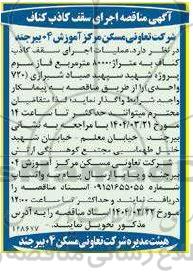 آگهی مناقصه اجرای سقف کاذب کناف
شرکت تعاونی مسکن مرکز آموزش ۰۴ بیرجند
در نظر دارد عملیات اجرای سقف کاذب
کناف به متراژ ۸۰۰۰۰ مترمربع فاز سوم
پروژه شهید سپهبد صیاد شیرازی (۷۲۰
واحدی) را از طریق مناقصه به پیمانکار
واجد شرایط واگذار نماید. لذا متقاضیان
محترم میتوانند حداکثر تا ساعت ۱۴
مورخ ۱۴۰۴/۰۳/۲۱ با مراجعه به نشانی
بیرجند خیابان معلم
شرکت تعاونی مسکن مرکز آموزش ۰۴
بیرجند و یا ارسال پیام به واتساپ
شماره ۰۹۱۵۱۶۵۵۰۵۵ اسناد مناقصه را
دریافت نمایند و حداکثر تا ساعت ۱۲:۰۰
مورخ ۱۴۰۴/۰۳/۲۲ اسناد مناقصه را به آدرس
مذکور تحویل نمایند.
هیئت مدیره شرکت تعاونی مسکن ۰۴ بیرجند